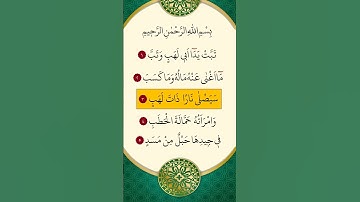 بِسْمِ اللهِ الرَّحْمٰنِ الرَّحِيمِ
تَبَّتْ يَدَآ اَبِي لَهَبٍ وَتَبَّ ١
مَآ اَغْنٰى عَنْهُ مَالُهُ وَمَا كَسَبَ ٢
سَيَصْلٰى نَارًا ذَاتَ لَهَبٍ ٣
وَامْرَاَتُهُ حَمَّالَةَ الْحَطَبِ ٤
فِي جِيدِهَا حَبْلٌ مِنْ مَسَدٍ ٥